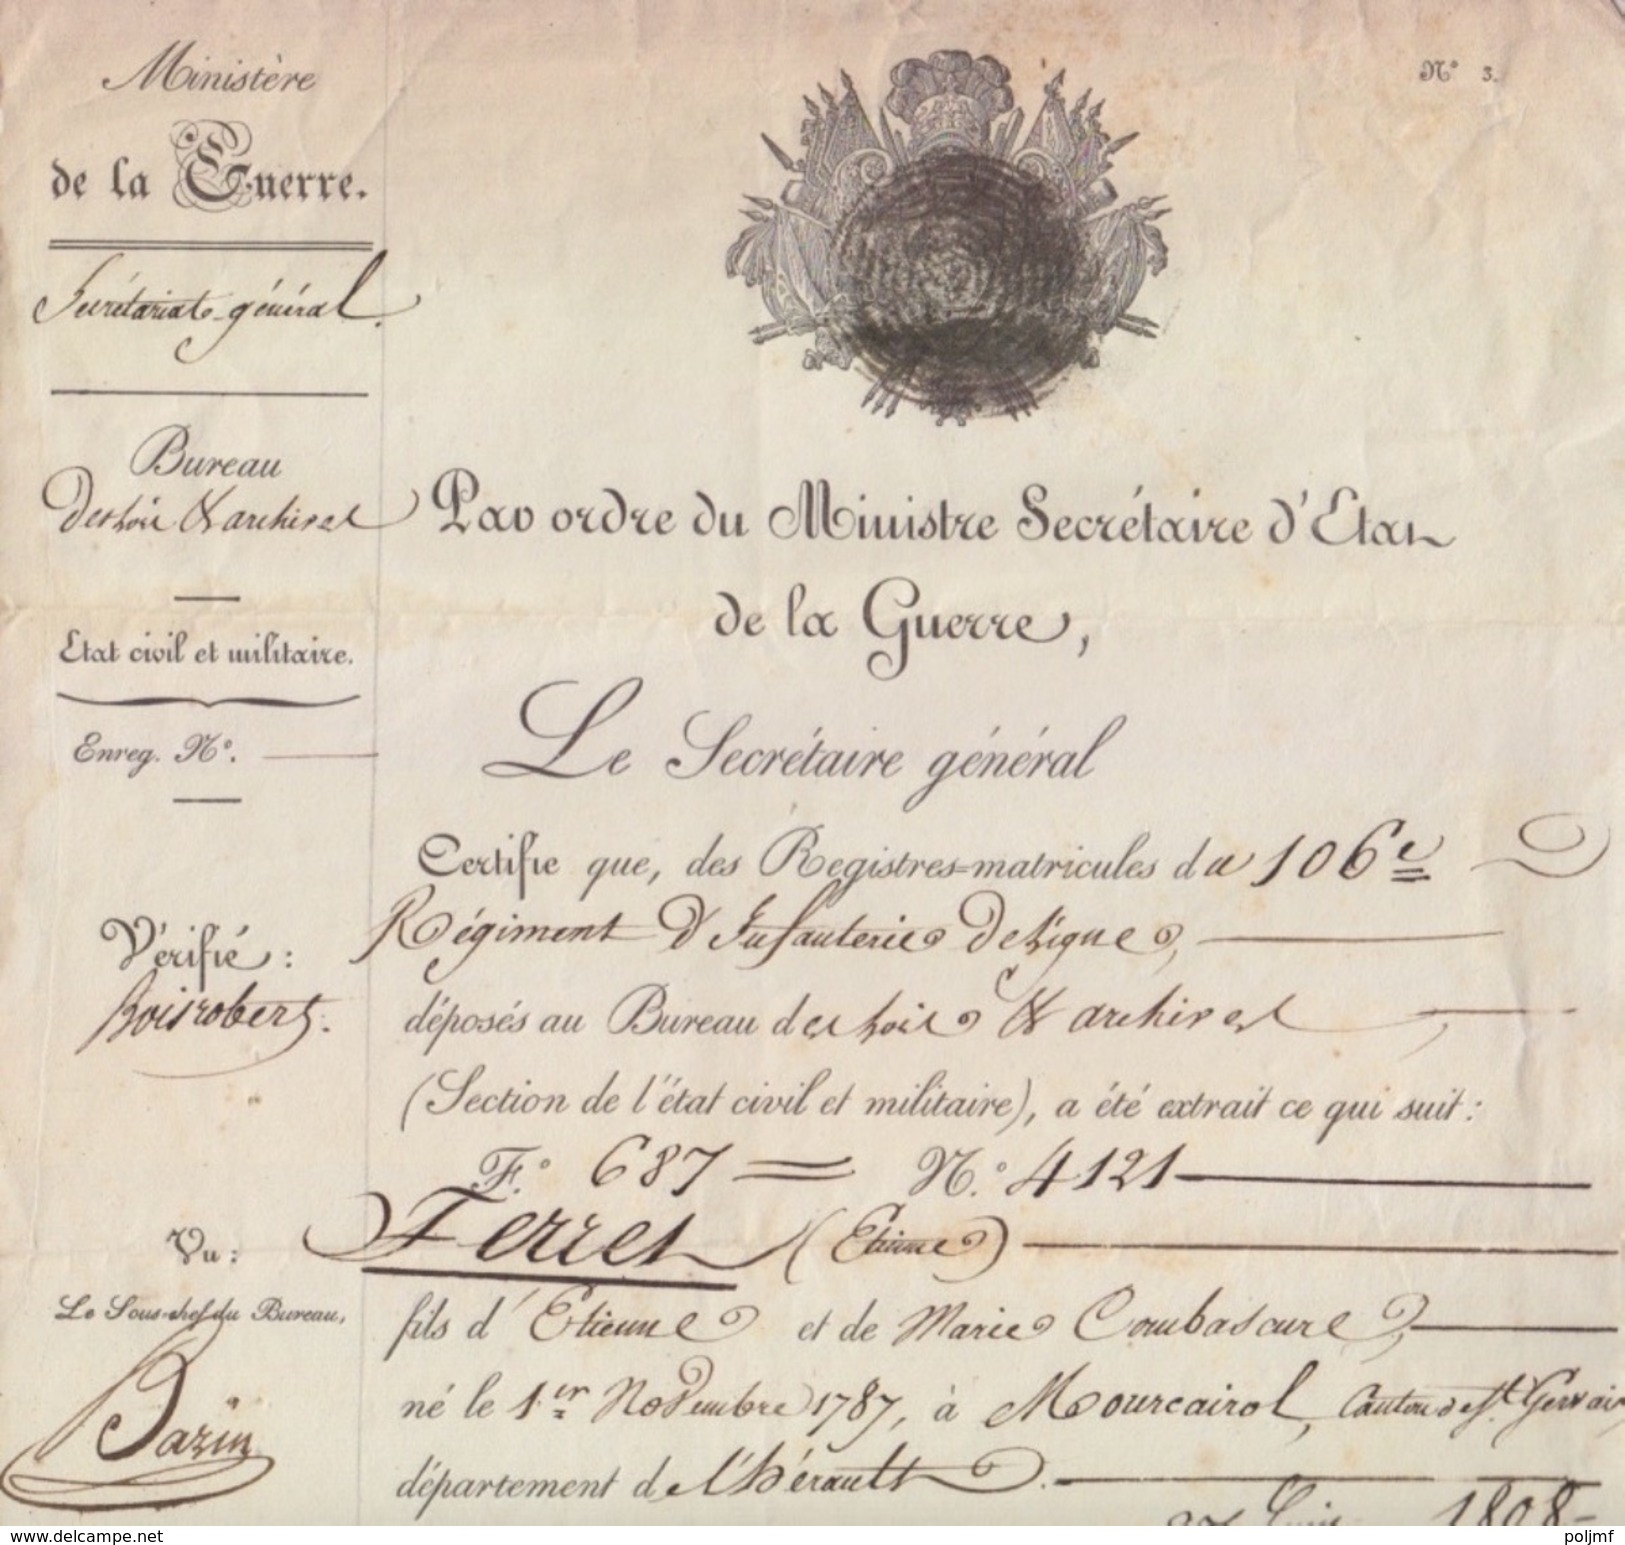 Nº 3.
Ministère
de la Guerre.
Secrétariat général.
Bureau
des Lois & archives
Etat civil et militaire.
Enreg. Nº.
Vérifié :
Boisrobert.
Vu :
Le Sous-chef du Bureau,
Bazin
Par ordre du Ministre Secrétaire d'Etat
de la Guerre,
Le Secrétaire général
Certifie que, des Registres-matricules du 106e
Régiment d'Infanterie de Ligne,
déposés au Bureau des Lois & archives,
(Section de l'état civil et militaire), a été extrait ce qui suit :
Fº. 687 Nº. 4121
Ferret (Etienne)
fils d'Etienne et de Marie Combascure,
né le 1er Novembre 1787, à Mourcairol, Canton de St. Gervais
département de l'hérault.
Juin 1808
www.delcampe.net
poljmf